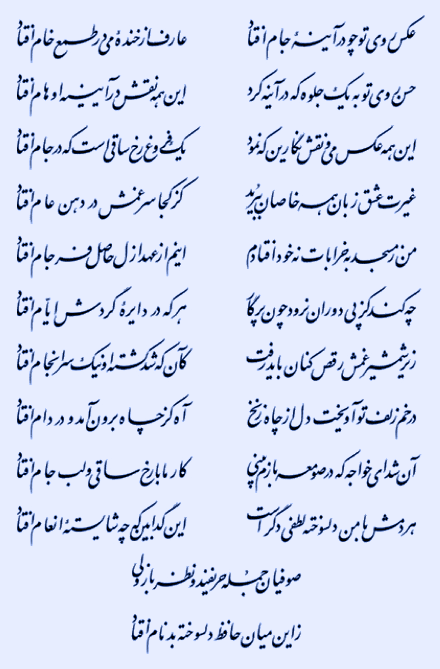 عکس روی تو چو در آینهٔ جام افتاد عارف از خندهٔ می در طمع خام افتاد
حسن روی تو به یک جلوه که در آینه کرد این همه نقش در آیینهٔ اوهام افتاد
این همه عکس می و نقش نگارین که نمود یک فروغ رخ ساقی است که در جام افتاد
غیرت عشق زبان همه خاصان ببرید کز کجا سر غمش در دهن عام افتاد
من ز مسجد به خرابات نه خود افتادم اینم از عهد ازل حاصل فرجام افتاد
چه کند کز پی دوران نرود چون پرگار هر که در دایرهٔ گردش ایام افتاد
زیر شمشیر غمش رقص کنان باید رفت کان که شد کشتهٔ او نیک سرانجام افتاد
در خم زلف تو آویخت دل از چاه زنخ آه کز چاه برون آمد و در دام افتاد
آن شد ای خواجه که در صومعه بازم بینی کار ما با رخ ساقی و لب جام افتاد
هر دمش با من دلسوخته لطفی دگر است این گدا بین که چه شایستهٔ انعام افتاد
صوفیان جمله حریفند و نظرباز ولی
زین میان حافظ دلسوخته بدنام افتاد